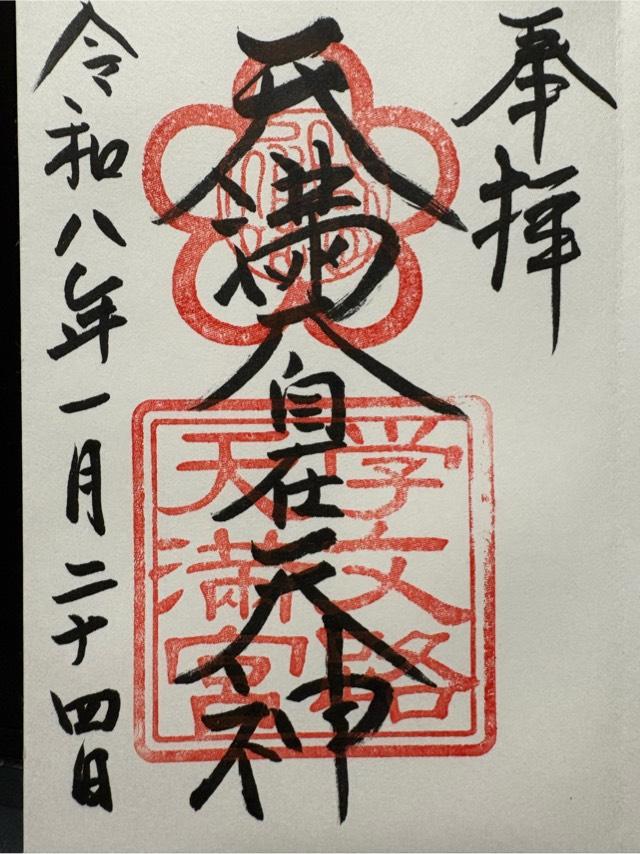 奉拝
天満大自在天神
学文路
天満宮
令和八年一月二十四日